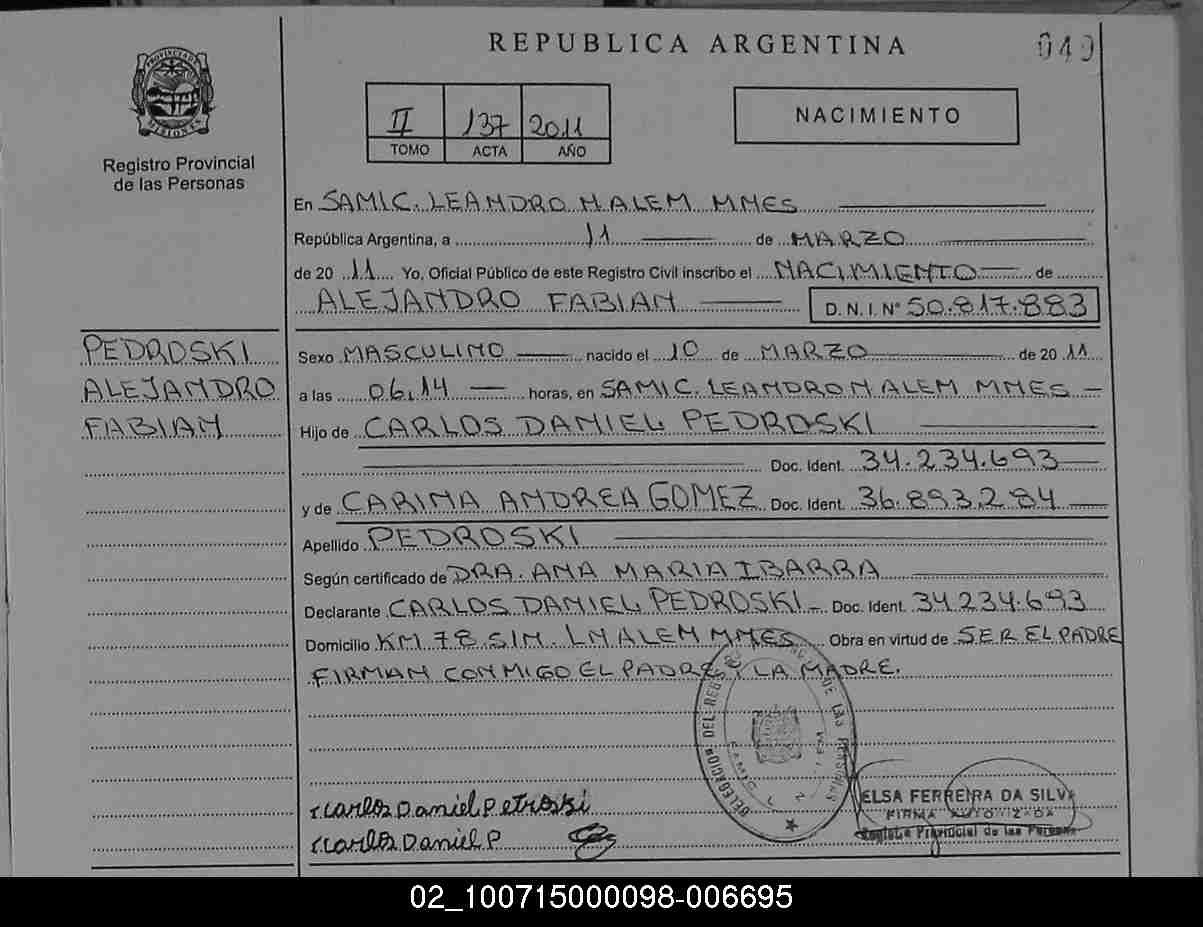 REPUBLICA ARGENTINA
049
PROVINCIA DE MISIONES
Registro Provincial
de las Personas
II 137 2011
TOMO ACTA AÑO
NACIMIENTO
En SAMIC. LEANDRO N ALEM MNES
República Argentina, a 11 de MARZO
de 20 11 Yo, Oficial Público de este Registro Civil inscribo el NACIMIENTO de
ALEJANDRO FABIAN D. N. I. N° 50.817.883
PEDROSKI
ALEJANDRO
FABIAN
Sexo MASCULINO nacido el 10 de MARZO de 20 11
a las 06,14 horas, en SAMIC. LEANDRO N ALEM MNES
Hijo de CARLOS DANIEL PEDROSKI
Doc. Ident. 34.234.693
y de CARINA ANDREA GOMEZ Doc. Ident. 36.893.284
Apellido PEDROSKI
Según certificado de DRA. ANA MARIA IBARRA
Declarante CARLOS DANIEL PEDROSKI Doc. Ident. 34.234.693
Domicilio KM 78 S/N. LN ALEM MNES Obra en virtud de SER EL PADRE
FIRMAN CONMIGO EL PADRE Y LA MADRE.
DELEGACION DEL REGISTRO DE LAS PERSONAS
Carlos Daniel Petroski
Carlos Daniel P
ELSA FERREIRA DA SILVA
FIRMA AUTORIZADA
Registro Provincial de las Personas
02_100715000098-006695